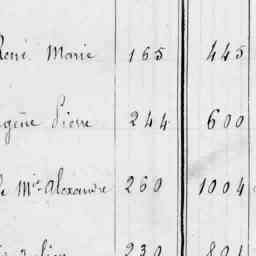 René Marie 165 445
Eugène Pierre 244 600
Mie Alexandre 260 1004
230 801